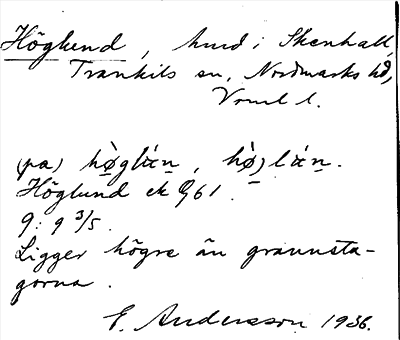 Höglund, hmd i Skenhall,
Trankils sn, Nordmarks hd,
Vrml l.
(pa) hø̀glún̠, hø̀glún̠.
Höglund ek 61.
9: 9 3/5.
Ligger högre än grannsta-
gorna.
E. Andersson 1936.